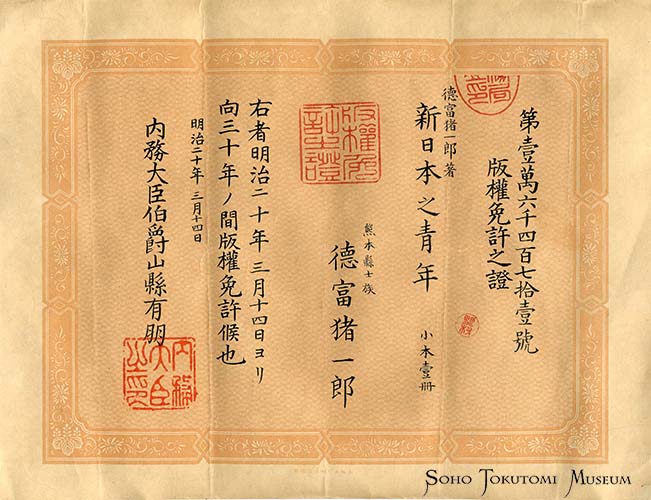 第壹萬六千四百七拾壹號
版權免許之證
德富猪一郎著
新日本之青年
小本壹冊
熊本縣士族
德富猪一郎
右者明治二十年三月十四日ヨリ
向三十年ノ間版權免許候也
明治二十年三月十四日
內務大臣伯爵山縣有朋
內務大臣之印
Soho Tokutomi Museum